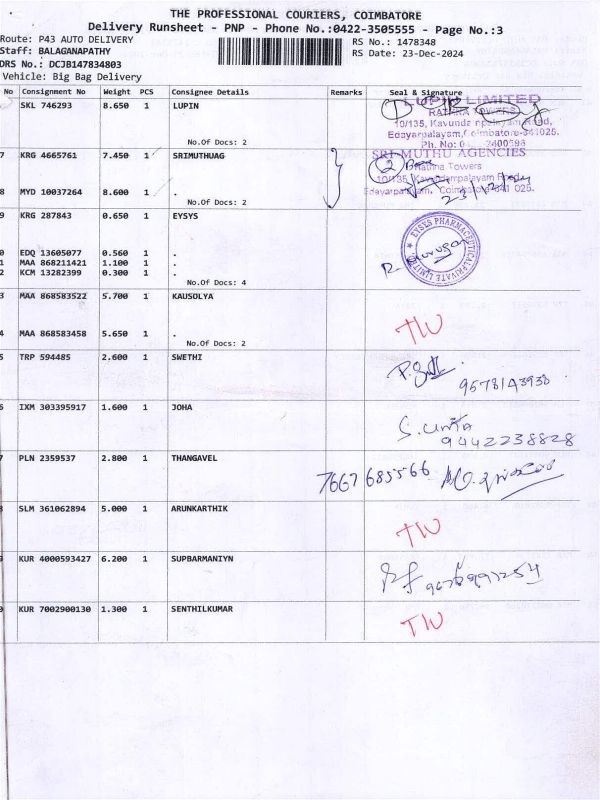 THE PROFESSIONAL COURIERS, COIMBATORE
Delivery Runsheet - PNP - Phone No.:0422-3505555 - Page No.:3
Route: P43 AUTO DELIVERY
Staff: BALAGANAPATHY
DRS No.: DCJB147834803
Vehicle: Big Bag Delivery
RS No.: 1478348
RS Date: 23-Dec-2024
No Consignment No Weight PCS Consignee Details Remarks Seal & Signature
SKL 746293 8.650 1 LUPIN
No.Of Docs: 2
LUPIN LIMITED
10/135, Kavunda mpalayam Road,
Edayarpalayam, Coimbatore-641025.
7 KRG 4665761 7.450 1 SRIMUTHUAG
SRI MUTHU AGENCIES
2
Rathna Towers
10/135, Kavundampalayam Road,
Edayarpalayam, Coimbatore-641 025.
8 MYD 10037264 8.600 1 .
No.Of Docs: 2
9 KRG 287843 0.650 1 EYSYS
EYSES PHARMACEUTICAL PRIVATE LIMITED
R. Murugan
0 EDQ 13605077 0.560 1 .
1 MAA 868211421 1.100 1 .
2 KCM 13282399 0.300 1 .
No.Of Docs: 4
3 MAA 868583522 5.700 1 KAUSOLYA
TIU
4 MAA 868583458 5.650 1 .
No.Of Docs: 2
5 TRP 594485 2.600 1 SWETHI
9578143938
6 IXM 303395917 1.600 1 JOHA
9442238828
7 PLN 2359537 2.800 1 THANGAVEL
7667685566
8 SLM 361062894 5.000 1 ARUNKARTHIK
TIU
9 KUR 4000593427 6.200 1 SUPBARMANIYN
0 KUR 7002900130 1.300 1 SENTHILKUMAR
TIU